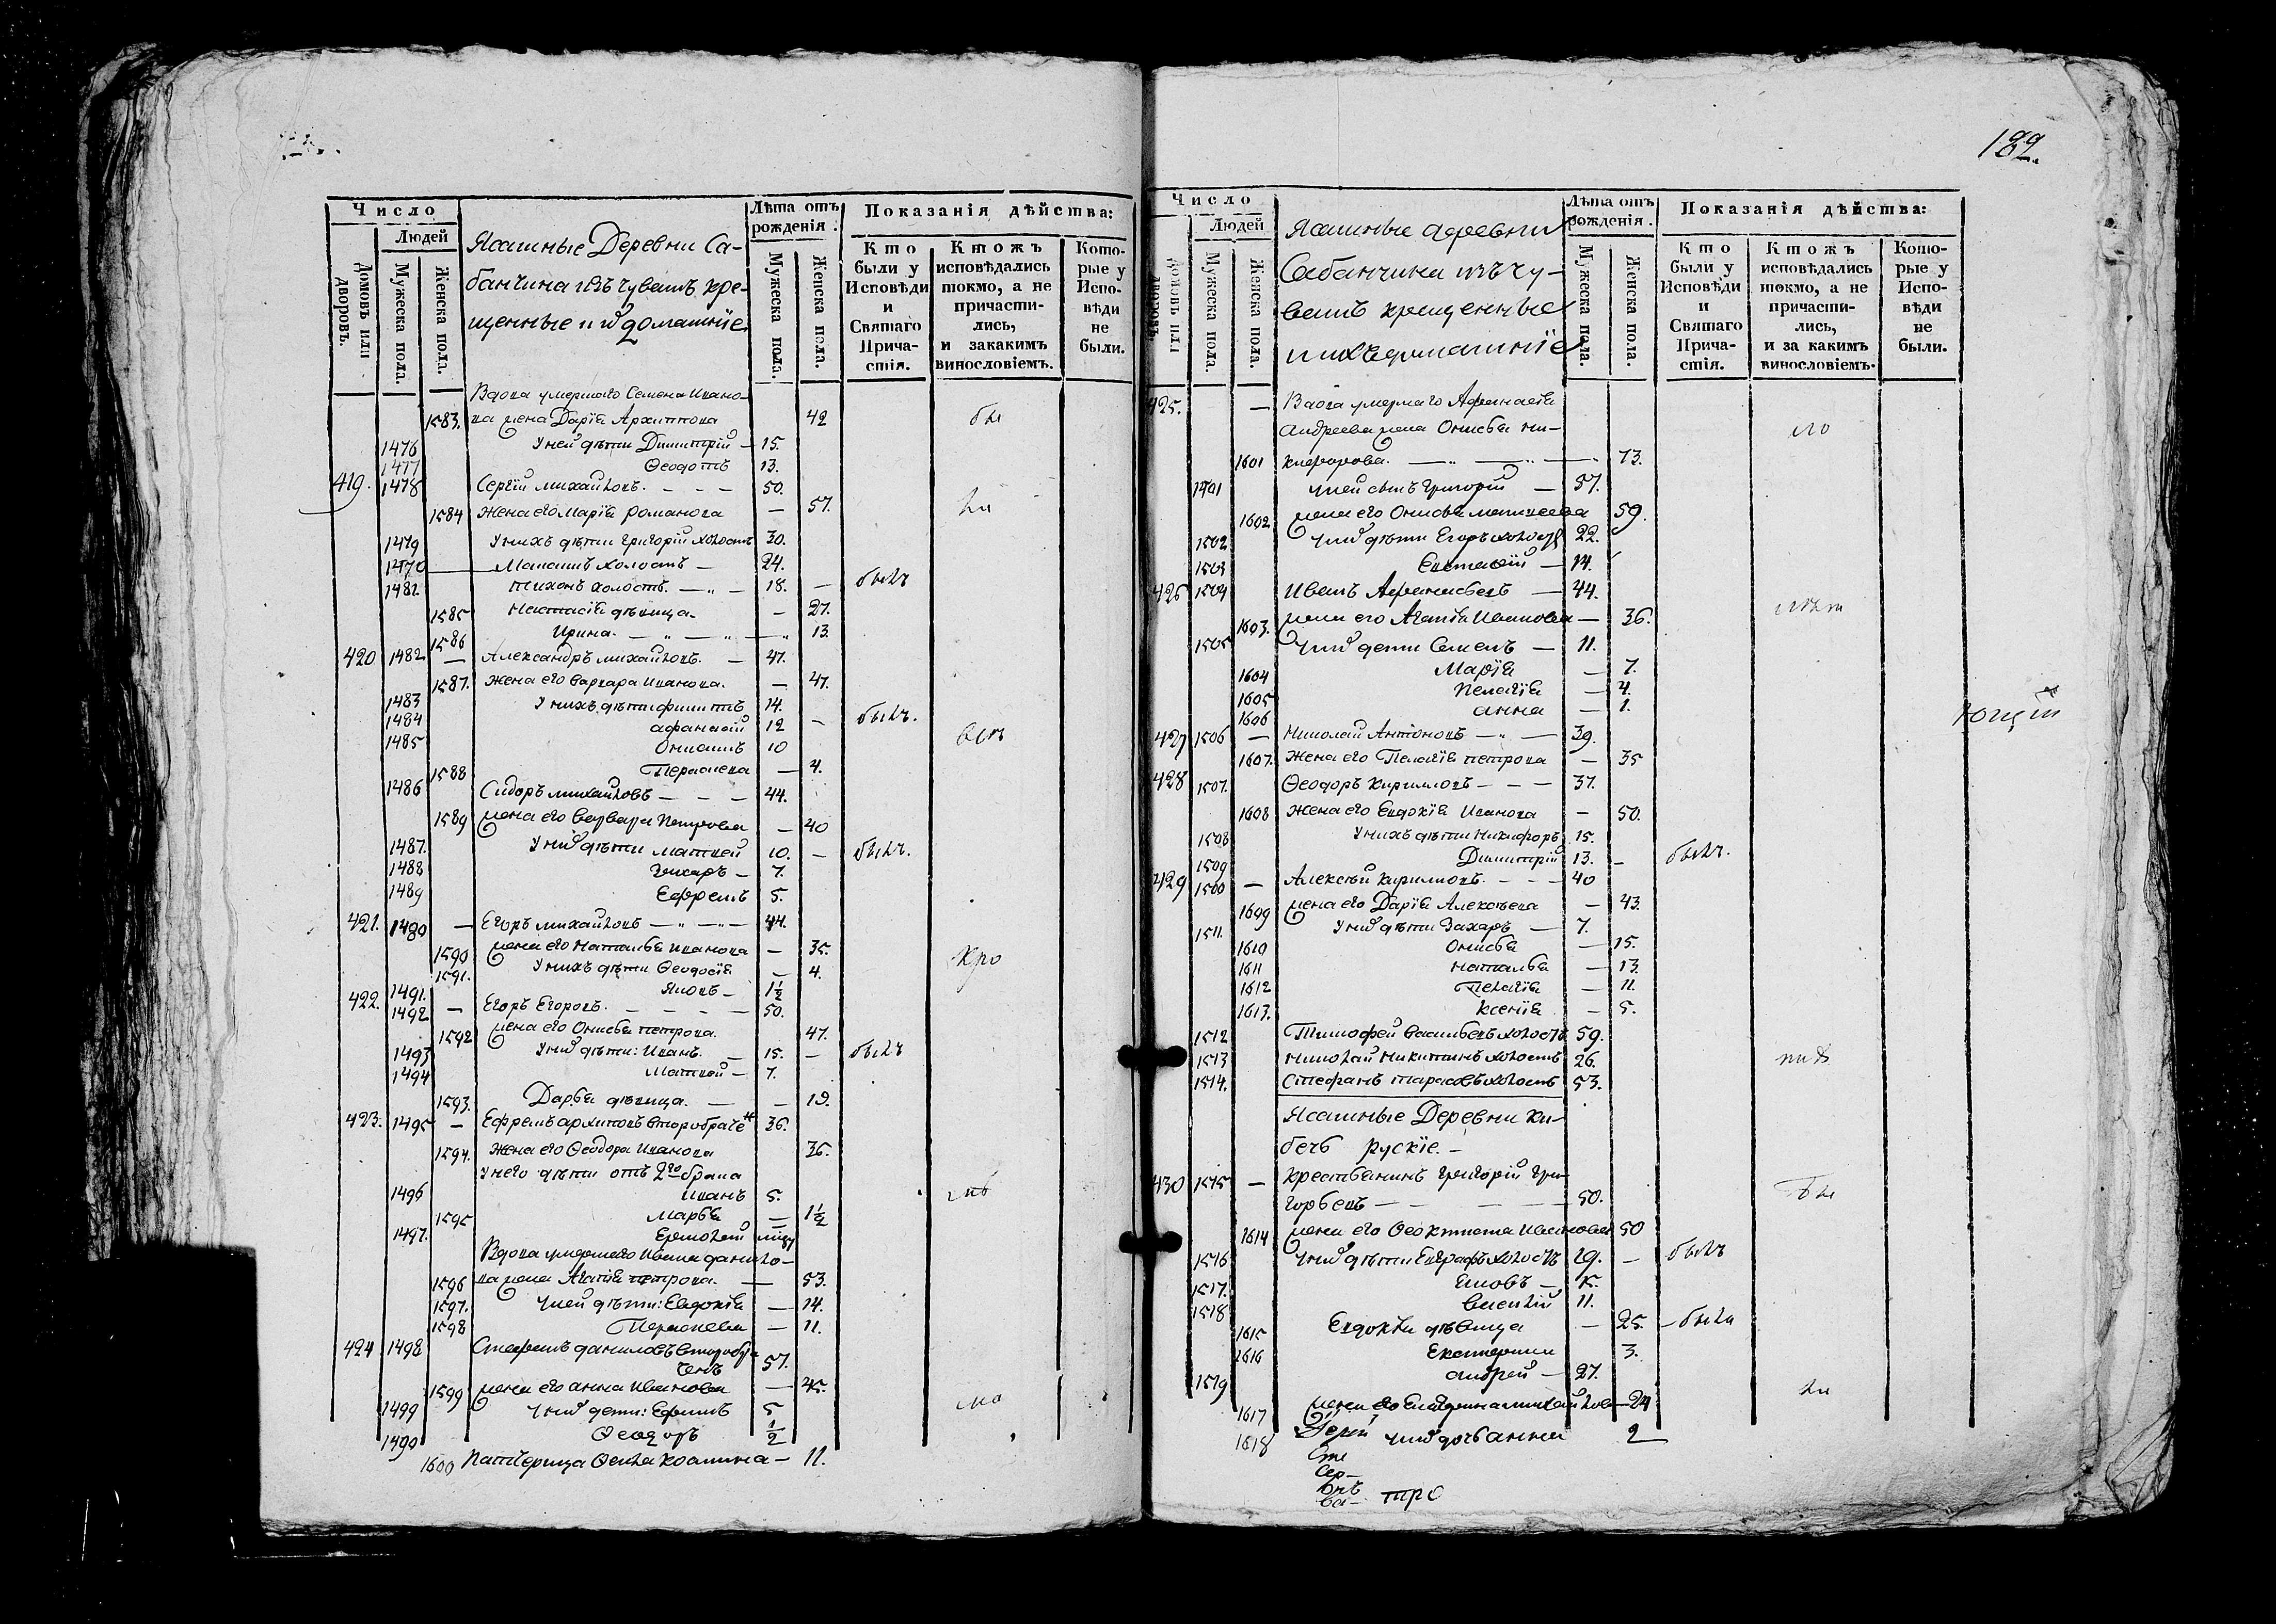 189.
Число
Людей
Домовъ или дворовъ.
Мужеска пола.
Женска пола.
Ясашные Деревни Са-
банчина изъ чувашъ кре-
щенные и ихъ домашніе
Лѣта отъ рожденія.
Мужеска пола.
Женска пола.
Показанія дѣйства:
Кто были у Исповѣди и Святаго Причастія.
Ктожъ исповѣдались токмо, а не причастились, и закакимъ винословіемъ.
Которые у Исповѣди не были.
Вдова умершаго Семена Ивано-
1583. ва жена Дарія Архиппова 42 бы
1476 У ней дѣти Димитрій — 15.
1477 Ѳеодотъ 13.
419. 1478 Сергій михайловъ. — — — 50.
1584 Жена его Марія романова — 57. ли
1479 У нихъ дѣти григорій холостъ 30.
1470 холостъ — 24.
1481 тихонъ холостъ. — 18. — былъ
1585 Настасія дѣвица. — 27.
1586 Ирина. — 13
420 1482 — Александръ михайловъ. — 47.
1587. Жена его варвара Иванова. — 47.
1483 У нихъ дѣти филиппъ 14.
1484 афанасій 12 — былъ.
1485 10
1588 Парасковья — 4.
1486 Сидоръ михайловъ — — — 44.
1589 жена его варвара Петрова — 40
1487. У нихъ дѣти матвей 10. — былъ.
1488 Захаръ — 7.
1489 Ефремъ 5.
421. 1480 — Егоръ михайловъ — 44.
1590 жена его наталья иванова — 35. кро
1591. У нихъ дѣти Ѳеодосія — 4.
1491. Яковъ — 1½
422. 1492 — Егоръ Егоровъ. — — — 50.
1592 жена его Онисья петрова. 47.
1493 У нихъ дѣти: Иванъ. — 15. — былъ
1494 Матвей — 7.
1593. Дарья дѣвица. — 19.
423. 1495 — Ефремъ архиповъ второбраче 36.
1594. Жена его Ѳеодора Иванова 36.
У него дѣти отъ 2го брака
1496 Иванъ 5.
1595 Марья — 1½
1497. Ермолай
Вдова умершаго Ивана данило-
1596 ва жена Агапія петрова. — 53.
1597. У ней дѣти: Евдокія — 14.
1598 Парасковья — 11.
424 1498 Стефанъ даниловъ второбра
ченъ 57.
1599 жена его анна Иванова — 45.
1499 У нихъ дети: Ефимъ 5
1490 Ѳеодоръ ½
1600 падчерица Ѳекла — 11.
Число
Людей
Домовъ или дворовъ.
Мужеска пола.
Женска пола.
Ясашные деревни
Сабанчина изъ чу-
вашъ крещенные
и ихъ домашніе
Лѣта отъ рожденія.
Мужеска пола.
Женска пола.
Показанія дѣйства:
Кто были у Исповѣди и Святаго Причастія.
Ктожъ исповѣдались токмо, а не причастились, и за какимъ винословіемъ.
Которые у Исповѣди не были.
425. — Вдова умершаго Афанасія
Андреева жена Онисья ни-
1601 кифорова. — 73.
1401 у ней сынъ григорій — 57.
1602 жена его Онисья матвеева 59.
1502 У нихъ дѣти Егоръ холостъ 22.
1503 14.
426 1504 Иванъ Афанасьевъ — 44.
1603. жена его Агапія Иванова — 36.
1505 У нихъ дети Семенъ — 11.
1604 Марія — 7.
1605 Пелагія — 4.
1606 анна — 1.
427 1506 — Николай Антоновъ — 39.
1607. Жена его Пелагія петрова — 35
428 1507. Ѳеодоръ кирилловъ — — — 37.
1608 Жена его Евдокія Иванова — 50.
1508 У нихъ дѣти Никифоръ 15.
1509 Димитрій 13. — былъ.
429 1500 — Алексѣй кириловъ. — — — 40
1609 жена его Дарія Алексѣева — 43.
1511. У нихъ дѣти Захаръ — 7.
1610 Онисья — 15.
1611 Наталья — 13.
1612 Пелагія — 11.
1613. Ксенія — 5.
1512 Тимофей васильевъ холостъ 59.
1513 Николай Никитинъ холостъ 26.
1514. Стефанъ тарасовъ холостъ 53.
Ясашные Деревни Ки-
бечь рускіе. —
430 1515 — крестьянинъ григорій гри- бы
горьевъ — — — — 50.
1614 жена его Ѳеоктиста Иванова 50
1516 У нихъ дѣти Евграфъ холостъ 29. — былъ
1517. 15.
1518 василій 11.
1615 Евдокія дѣвица — 25. — была
1616 Екатерина 3.
1519 андрей — 27. ли
1617 жена его михайлова — 24
1618 у нихъ дочь анна 2